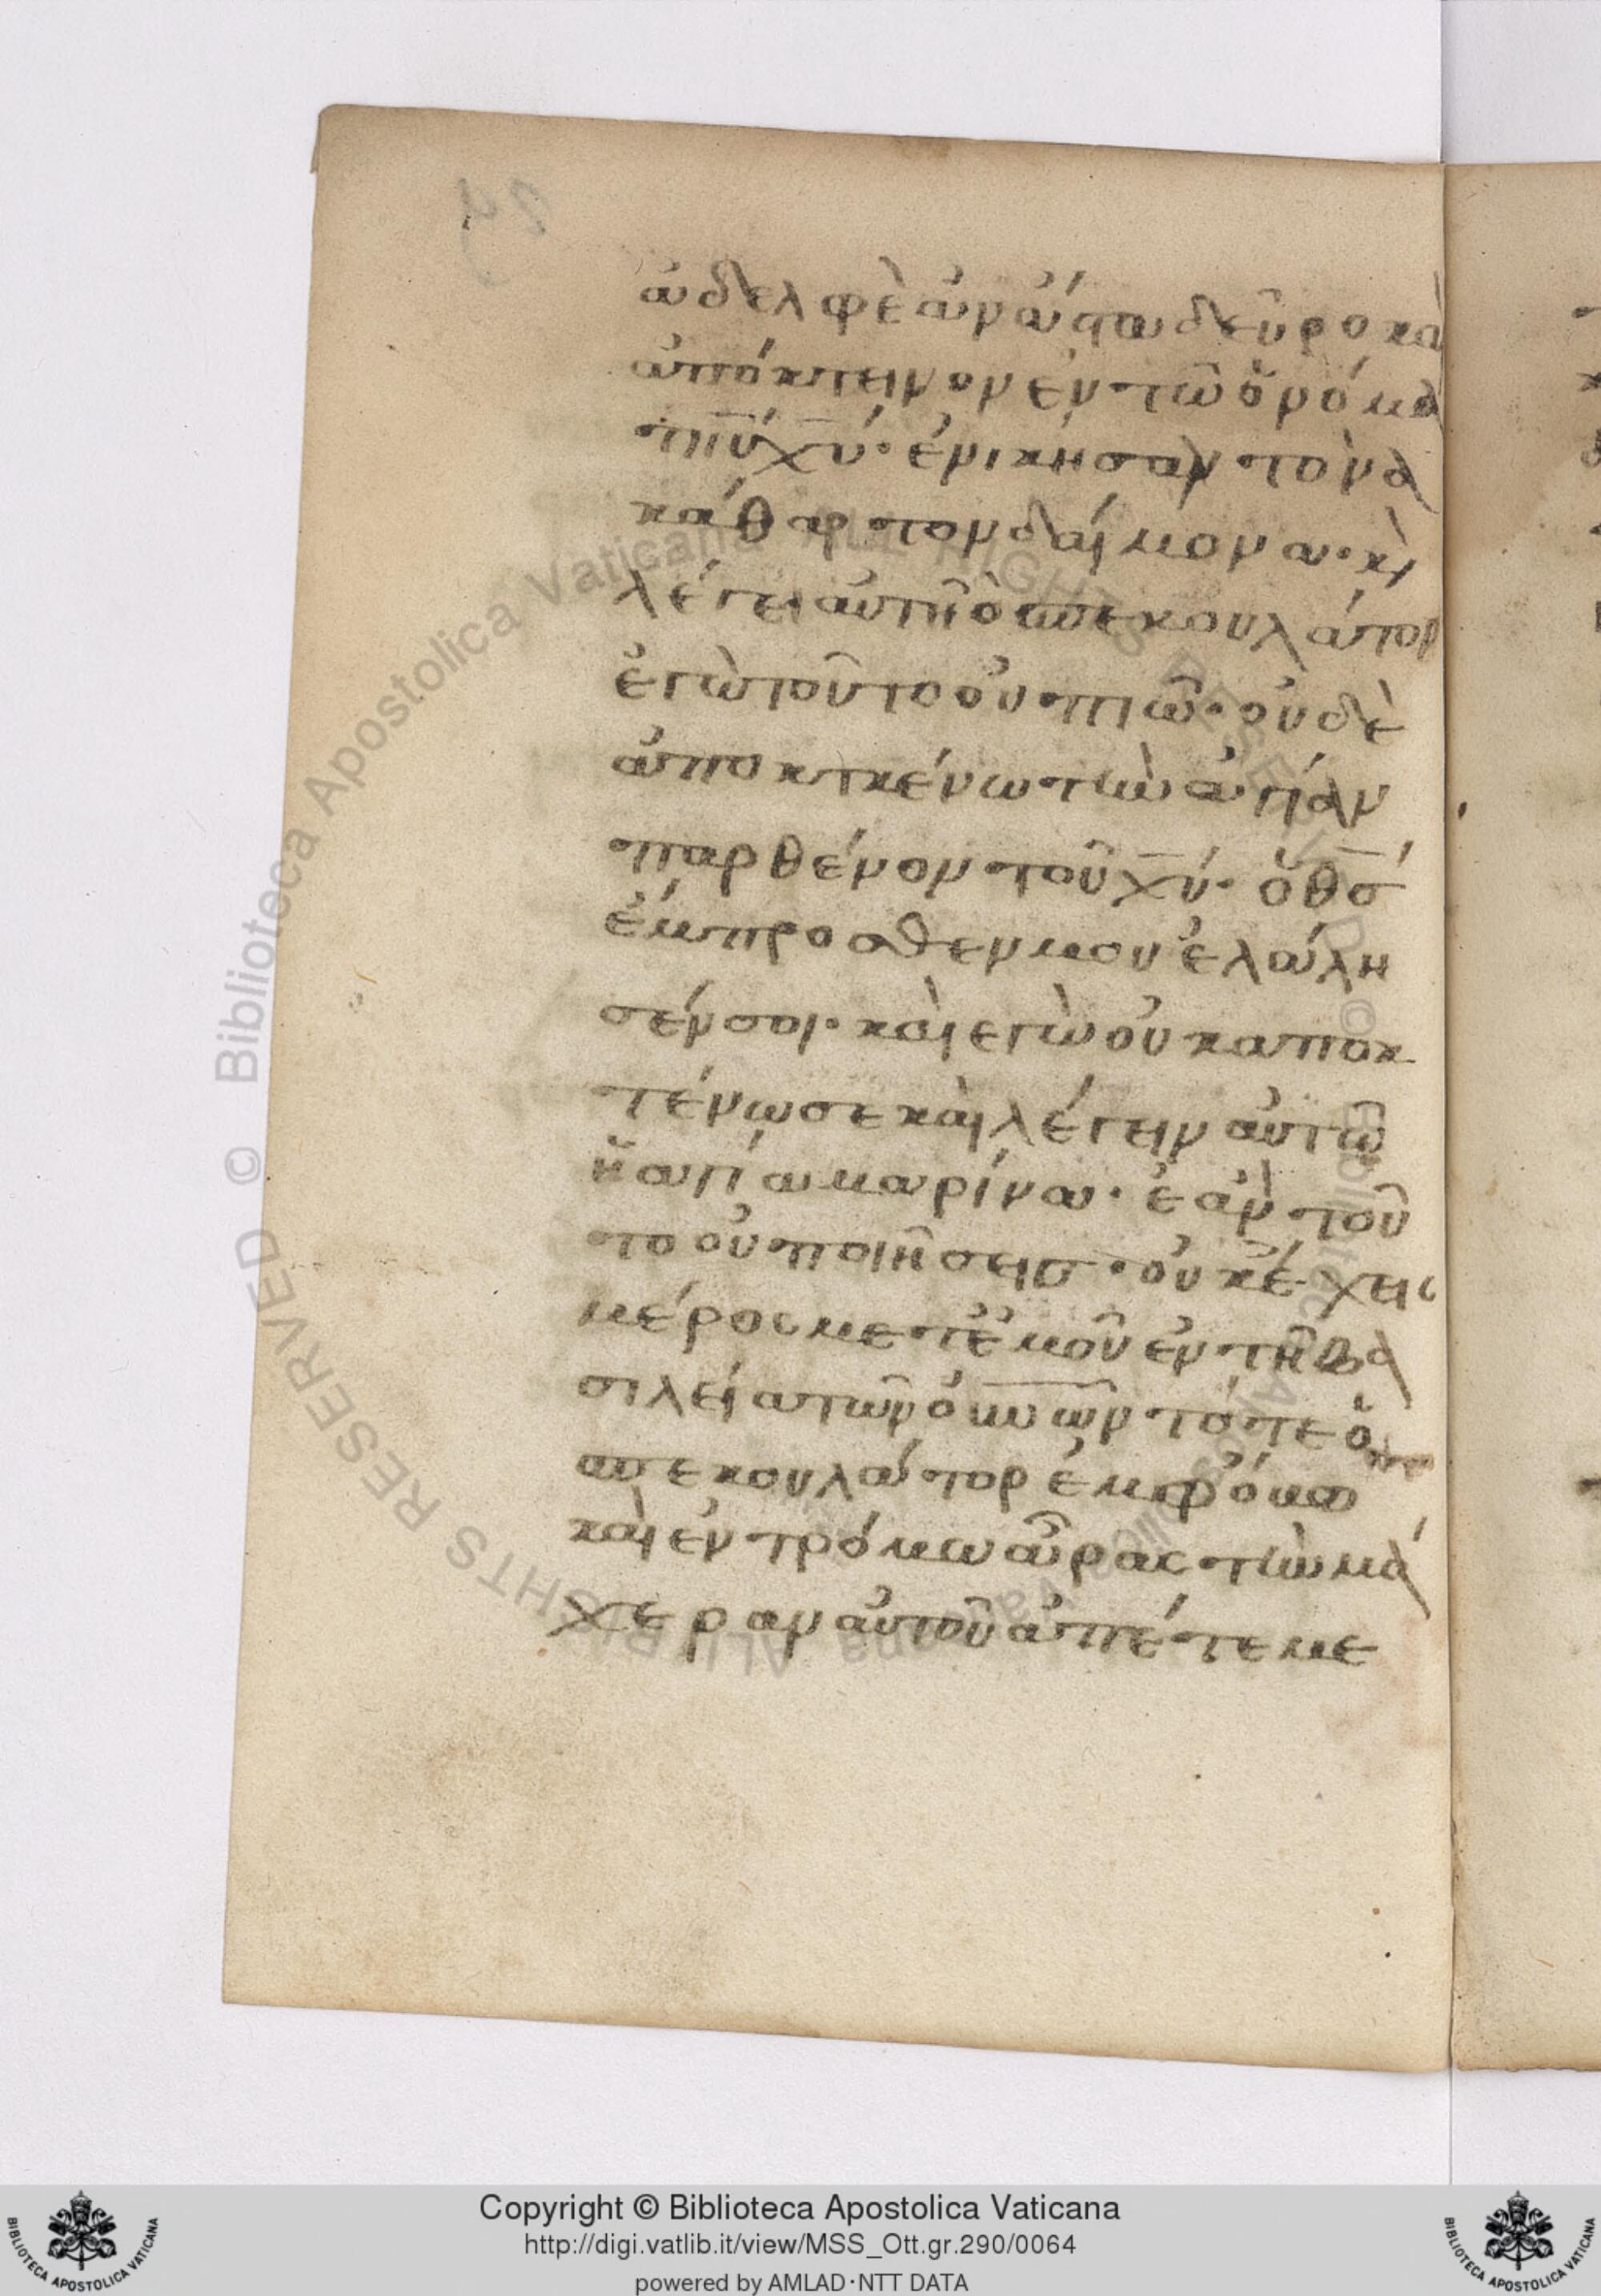 ἀδελφὲ ἀνάστα δεῦρο καὶ
ἀπόκτεινον ἐν τῶ ὀνόμα
τι ιυ χυ· ἐνίκησα γὰρ τὸν ἀ
κάθαρτον δαίμονα· κὶ
λέγει αὐτῆ ὁ σπεκουλάτορ
ἐγὼ τοῦτο οὐ πιῶ· οὐδὲ
ἀποκτκένω τὴν ἁγίαν
παρθένον τοῦ χυ· ὁ θσ
ἔμπροσθεν μου ἐλάλη
σέν σοι· καὶ εγὼ οὐκ αποκ
τένω σε καὶ λέγειν αὐτῶ
ἡ αγία μαρίνα· ἐὰν τοῦ
το οὐ ποιῆσεισ· οὐκ έχεις
μέρος μετ ἐμοῦ ἐν τῆ βα
σιλεία τῶν ουνων τότε ὁ
σπεκουλάτορ ἐμφόβω
καὶ ἐν τρόμω ἄρας τὴν μά
χεραν αὐτοῦ ἀπέτεμε
Copyright © Biblioteca Apostolica Vaticana
http://digi.vatlib.it/view/MSS_Ott.gr.290/0064
powered by AMLAD·NTT DATA